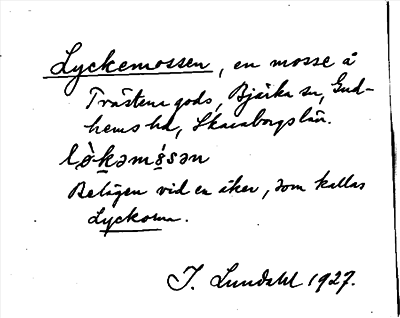 Lyckemossen, en mosse å
Trästena gods, Bjärka sn, Gud-
hems hd, Skaraborgs län.
lø̀kəmɷ́sən
Belägen vid en åker, som kallas
Lyckorna.
J. Lundahl 1927.